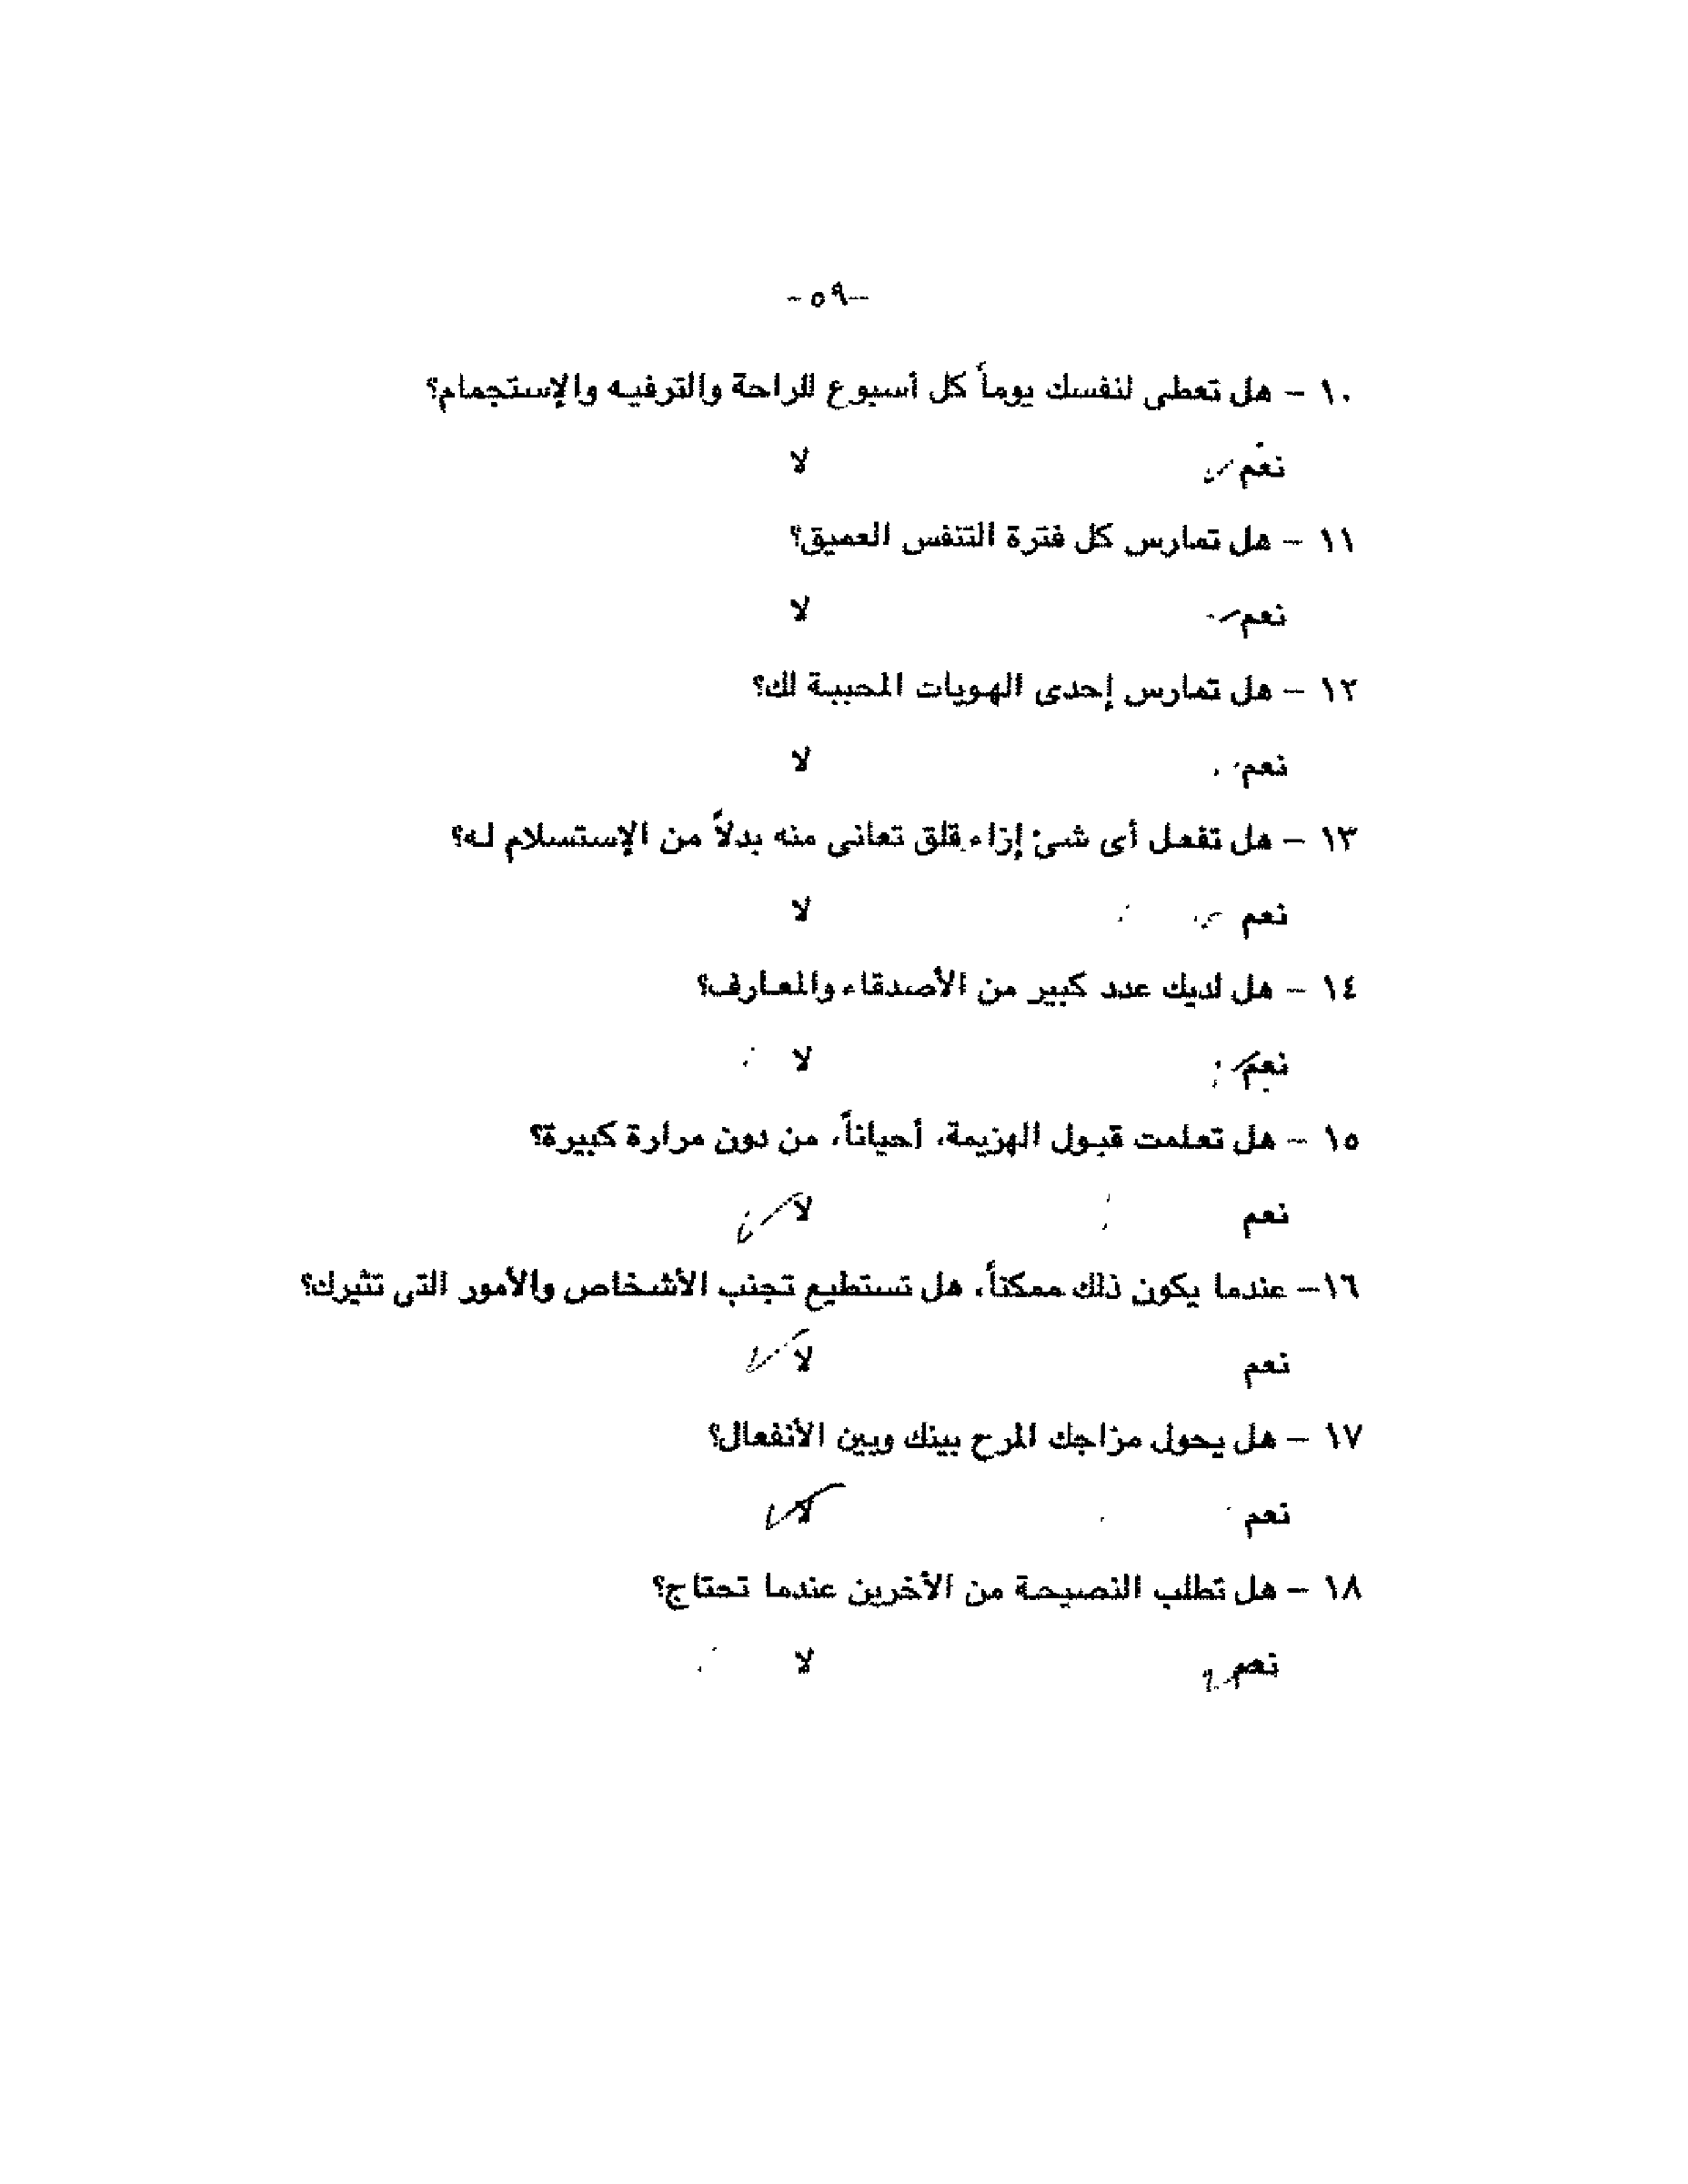 -٥٩-
١٠ - هل تعطى لنفسك يوماً كل أسبوع للراحة والترفيه والإستجمام؟
نعم لا
١١ - هل تمارس كل فترة التنفس العميق؟
نعم لا
١٢ - هل تمارس إحدى الهويات المحببة لك؟
نعم لا
١٣ - هل تفعل أى شئ إزاء قلق تعانى منه بدلاً من الإستسلام له؟
نعم لا
١٤ - هل لديك عدد كبير من الأصدقاء والمعارف؟
نعم لا
١٥ - هل تعلمت قبول الهزيمة، أحياناً، من دون مرارة كبيرة؟
نعم لا
١٦- عندما يكون ذلك ممكناً، هل تستطيع تجنب الأشخاص والأمور التى تثيرك؟
نعم لا
١٧ - هل يحول مزاجك المرح بينك وبين الأنفعال؟
نعم لا
١٨ - هل تطلب النصيحة من الأخرين عندما تحتاج؟
نعم لا